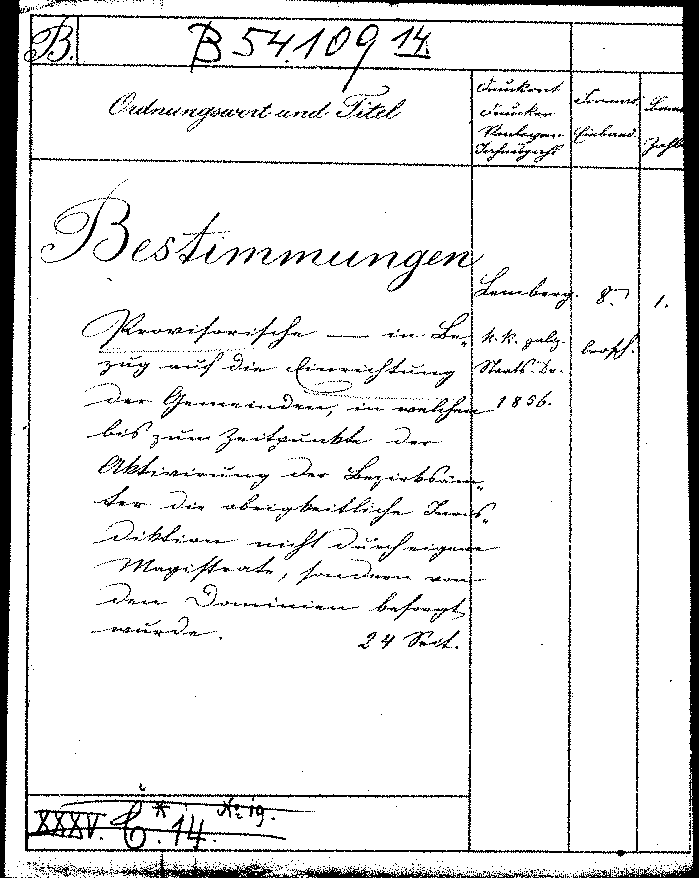 B. B 54.109 14.
Ordnungswort und Titel
Druckort
Drucker
Verleger
Jahreszahl
Format
Einband
Zahl
Bestimmungen
Provisorische — in Be-
zug auf die Einrichtung
der Gemeinden, in welchen
bis zum Zeitpunkte der
Aktivirung der Bezirksäm-
ter die obrigkeitliche Juris-
diktion nicht durch eigene
Magistrate, sondern von
den Dominien besorgt
wurde.
24 Seit.
Lemberg.
k. k. galiz.
Staats-Dr.
1856.
8.
brosch.
1.
XXXV. C. 14. No 19.